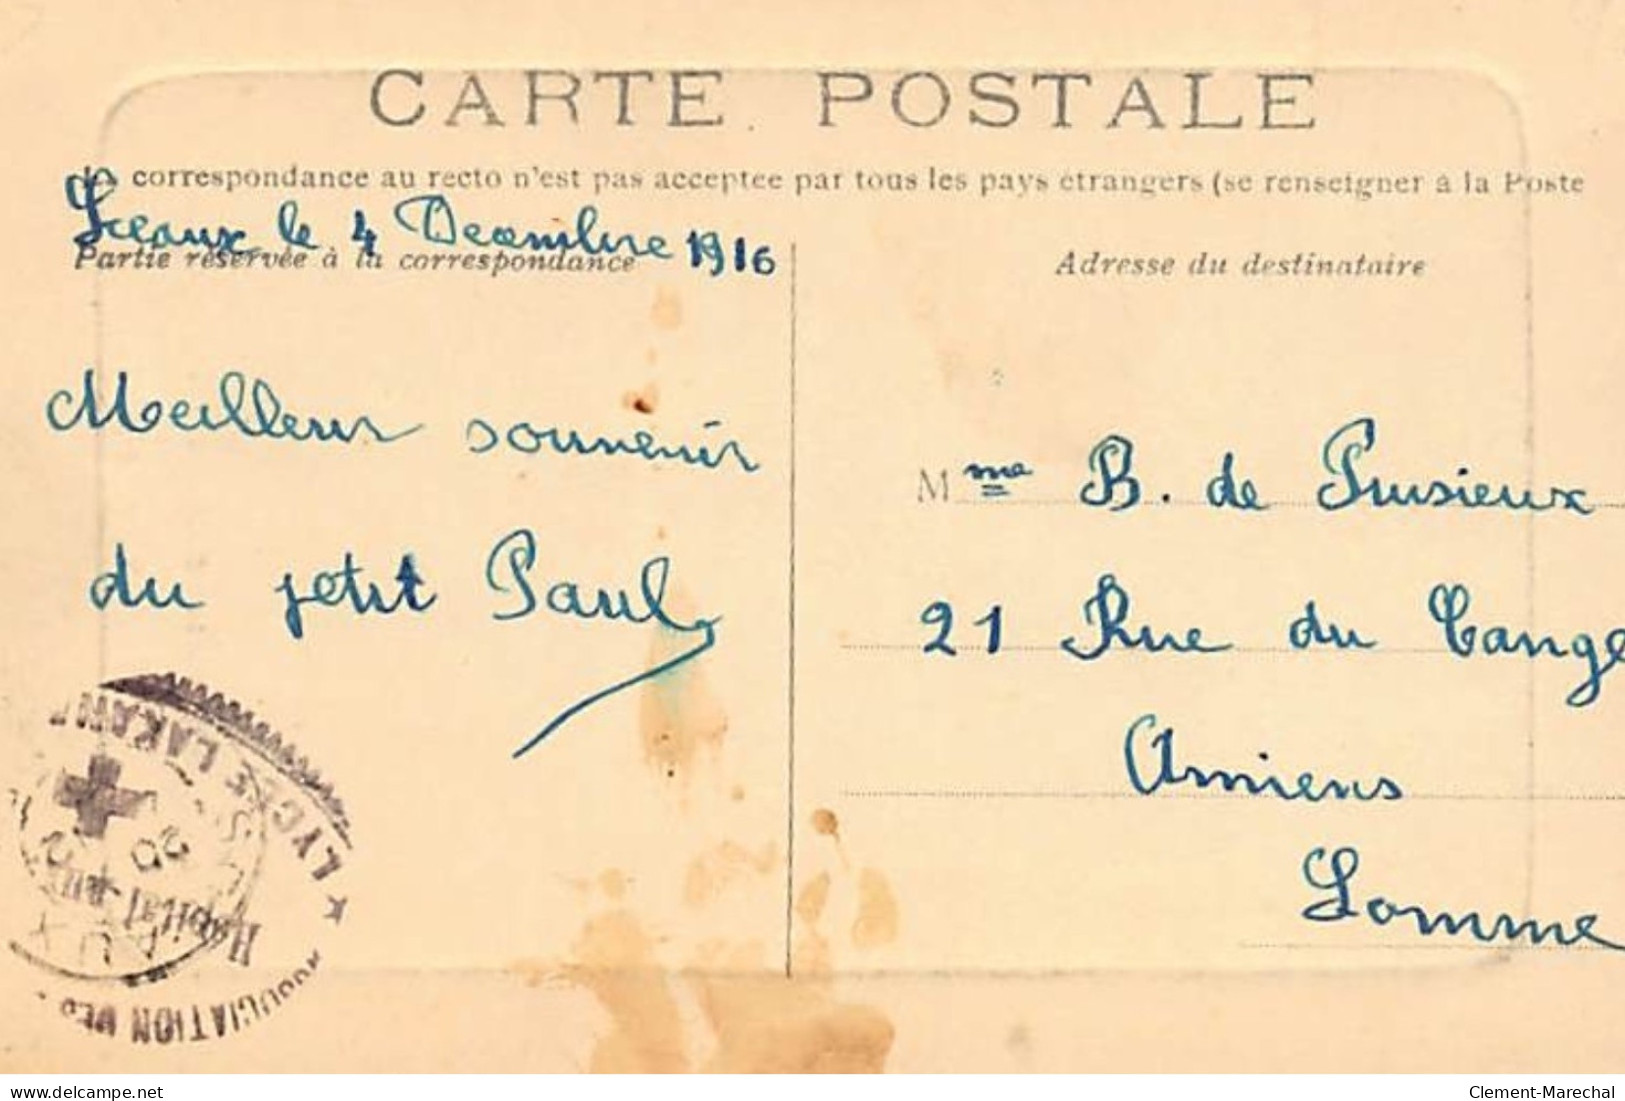 CARTE POSTALE
La correspondance au recto n'est pas acceptée par tous les pays étrangers (se renseigner à la Poste
Sceaux le 4 Decembre 1916
Partie réservée à la correspondance
Adresse du destinataire
Meilleur souvenir
du petit Paul
Mme B. de Puisieux
21 Rue du Cange
Amiens
Somme
★ LYCÉE LAKAN
Hôpital
AUX
20
www.delcampe.net
Clement-Marechal